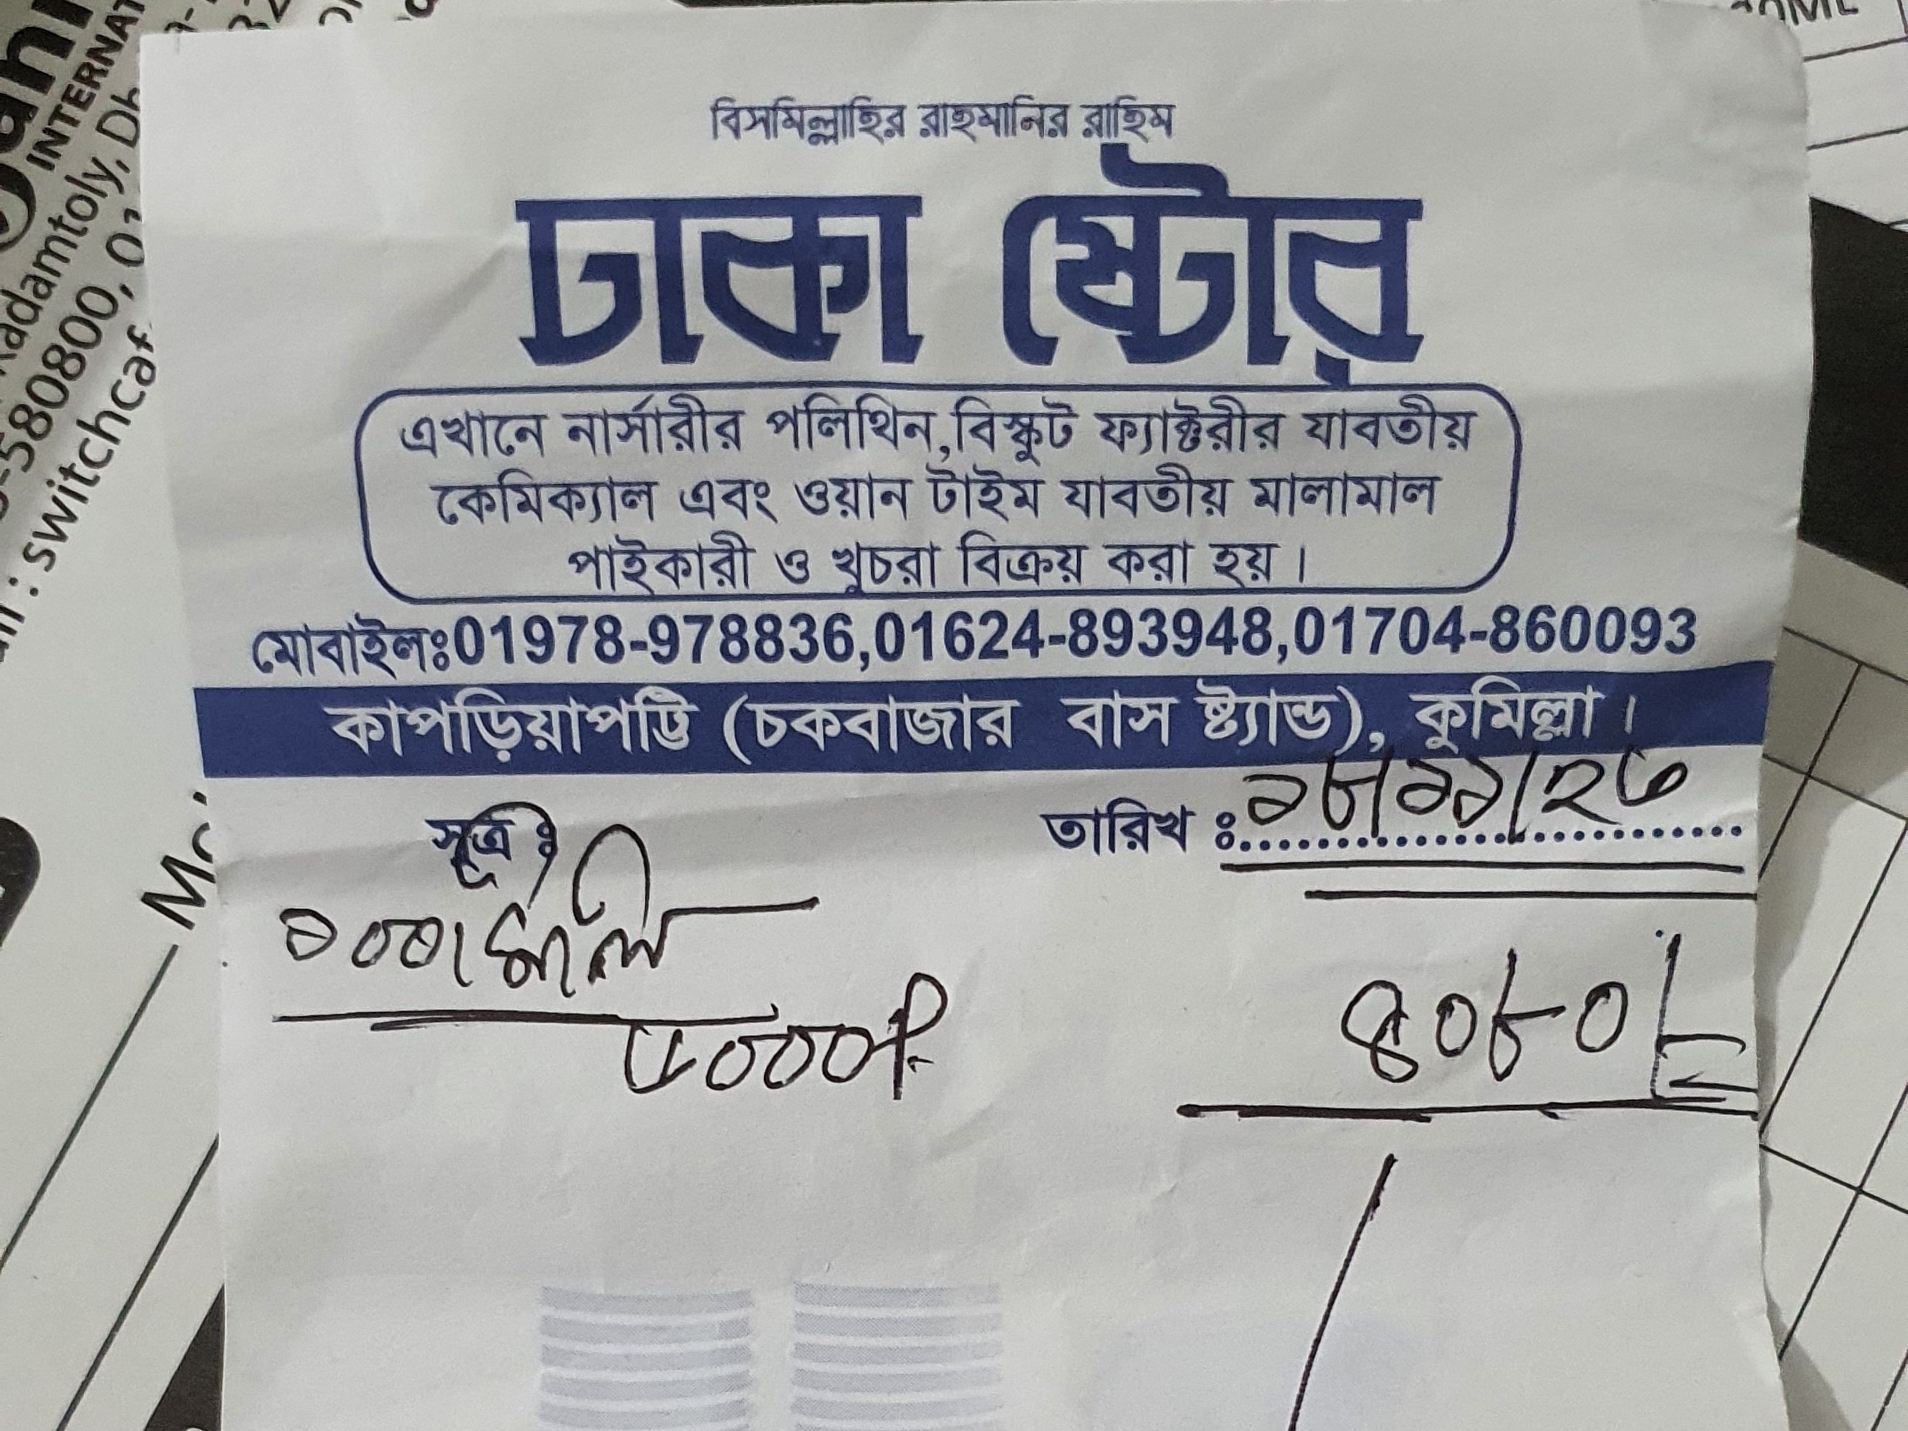 বিসমিল্লাহির রাহমানির রাহিম
ঢাকা ষ্টোর
এখানে নার্সারীর পলিথিন,বিস্কুট ফ্যাক্টরীর যাবতীয়
কেমিক্যাল এবং ওয়ান টাইম যাবতীয় মালামাল
পাইকারী ও খুচরা বিক্রয় করা হয়।
মোবাইলঃ01978-978836,01624-893948,01704-860093
কাপড়িয়াপট্টি (চকবাজার বাস ষ্ট্যান্ড), কুমিল্লা।
সূত্র ঃ
তারিখ ঃ ১৮/১১/২৩
৪০৮০/=
INTERNAT
adamtoly, Dh
-580800, 01
: switchcaf